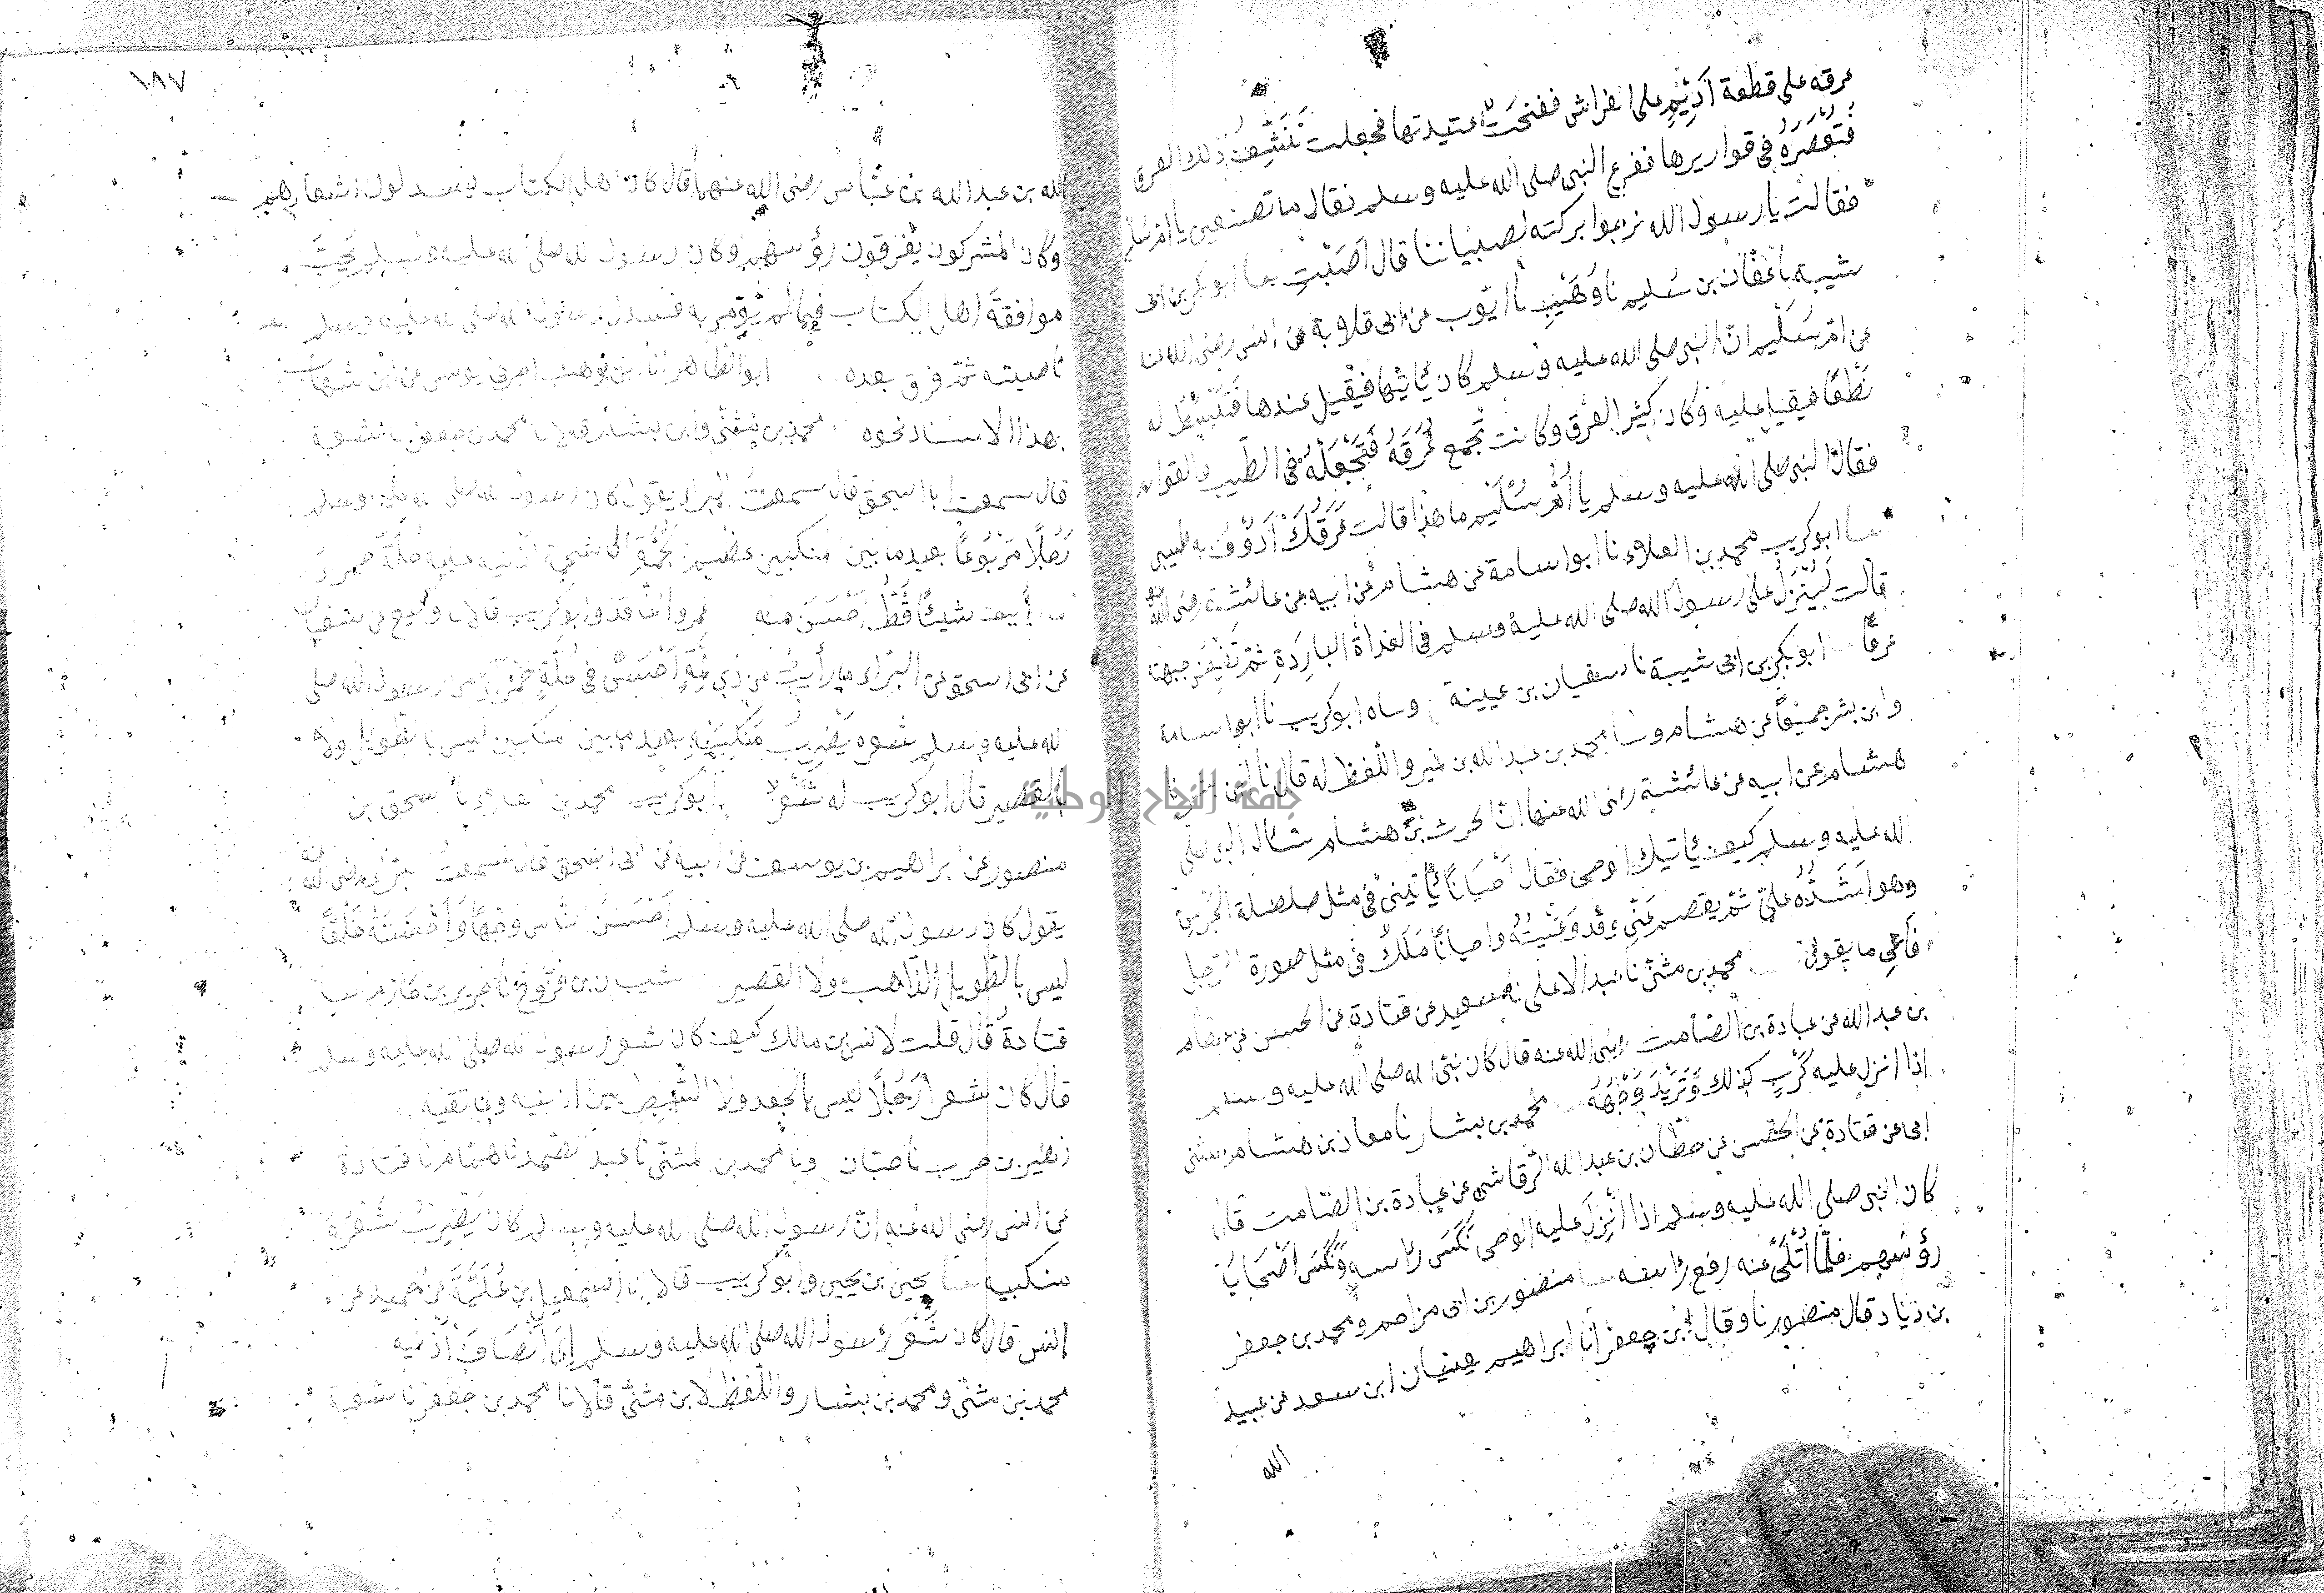 عرقه على قطعة أديم على الفراش ففتحت عتيدتها فجعلت تنشف ذلك العرق
فتعصره في قواريرها ففزع النبي صلى الله عليه وسلم فقال ما تصنعين يا ام سليم
فقالت يا رسول الله نرجوا بركته لصبياننا قال أصبت ابو بكر بن ابى
شيبة نا عفان بن سليم نا وهيب نا ايوب عن ابى قلابة عن انس رضى الله عنه
عن ام سليم ان النبى صلى الله عليه وسلم كان يأتيها فيقيل عندها فتبسط له
نطعا فيقيل عليه وكان كثير العرق وكانت تجمع عرقه فتجعله فى الطيب والقوارير
فقال النبى صلى الله عليه وسلم يا أم سليم ما هذا قالت عرقك أدوف به طيبى
ابو كريب محمد بن العلاء نا ابو اسامة عن هشام عن ابيه عن عائشة رضى الله
قالت لينزل على رسول الله صلى الله عليه وسلم فى الغداة الباردة ثم تفيض جبهته
عرقا ابو بكر بن ابى شيبة نا سفيان بن عيينة وسا ابو كريب نا ابو اسامة
وابن بشر جميعا عن هشام وسا محمد بن عبد الله بن نمير واللفظ له قال نا ابن بشر نا
هشام عن ابيه عن عائشة رضى الله عنها ان الحرث بن هشام سأل النبى صلى
الله عليه وسلم كيف يأتيك الوحى فقال أحيانا يأتينى فى مثل صلصلة الجرس
وهو أشده على ثم يفصم عنى وقد وعيته واحيانا ملك فى مثل صورة الرجل
فأعى ما يقول محمد بن مثنى نا عبد الاعلى نا سعيد عن قتادة عن الحسن عن حطان
بن عبد الله عن عبادة بن الصامت رضى الله عنه قال كان نبى الله صلى الله عليه وسلم
اذا انزل عليه كرب كذلك وتربد وجهه محمد بن بشار نا معاذ بن هشام حدثنى
ابى عن قتادة عن الحسن عن حطان بن عبد الله الرقاشى عن عبادة بن الصامت قال
كان النبى صلى الله عليه وسلم اذا أنزل عليه الوحى نكس رأسه ونكس أصحابه
رؤسهم فلما أتلى عنه رفع رأسه منصور بن ابى مزاحم ومحمد بن جعفر
بن زياد قال منصور نا وقال ابن جعفر أنا ابراهيم يعنيان ابن سعد عن عبيد
الله
١٨٧
الله بن عبد الله بن عباس رضى الله عنهما قال كان اهل الكتاب يسدلون اشعارهم
وكان المشركون يفرقون رؤسهم وكان رسول الله صلى الله عليه وسلم يحب
موافقة اهل الكتاب فيما لم يؤمر به فسدل رسول الله صلى الله عليه وسلم
ناصيته ثم فرق بعده ابو الطاهر انا ابن وهب اخبرنى يونس عن ابن شهاب
بهذا الاسناد نحوه محمد بن مثنى وابن بشار قالا نا محمد بن جعفر نا شعبة
قال سمعت ابا اسحق قال سمعت البراء يقول كان رسول الله صلى الله عليه وسلم
رجلا مربوعا بعيد ما بين المنكبين عظيم الجمة الى شحمة أذنيه عليه حلة حمراء
ما رأيت شيئا قط احسن منه عمرو الناقد وابو كريب قالا نا وكيع عن سفيان
عن ابى اسحق عن البراء ما رأيت من ذى لمة أحسن فى حلة حمراء من رسول الله صلى
الله عليه وسلم شعره يضرب منكبيه بعيد ما بين المنكبين ليس بالطويل ولا
بالقصير قال ابو كريب له شعر ابو كريب محمد بن العلاء نا اسحق بن
منصور عن ابراهيم بن يوسف عن ابيه عن ابى اسحق قال سمعت البراء رضى الله عنه
يقول كان رسول الله صلى الله عليه وسلم أحسن الناس وجها وأحسنه خلقا
ليس بالطويل الذاهب ولا القصير شيبان بن فروخ نا جرير بن حازم نا
قتادة قال قلت لانس بن مالك كيف كان شعر رسول الله صلى الله عليه وسلم
قال كان شعرا رجلا ليس بالجعد ولا السبط بين اذنيه وعاتقيه
زهير بن حرب نا حبان ونا محمد بن المثنى نا عبد الصمد نا همام نا قتادة
عن انس رضى الله عنه ان رسول الله صلى الله عليه وسلم كان يضرب شعره
منكبيه يحيى بن يحيى وابو كريب قالا نا اسمعيل بن علية عن حميد عن
انس قال كان شعر رسول الله صلى الله عليه وسلم إلى أنصاف أذنيه
محمد بن مثنى ومحمد بن بشار واللفظ لابن مثنى قالا نا محمد بن جعفر نا شعبة
جامعة النجاح الوطنية